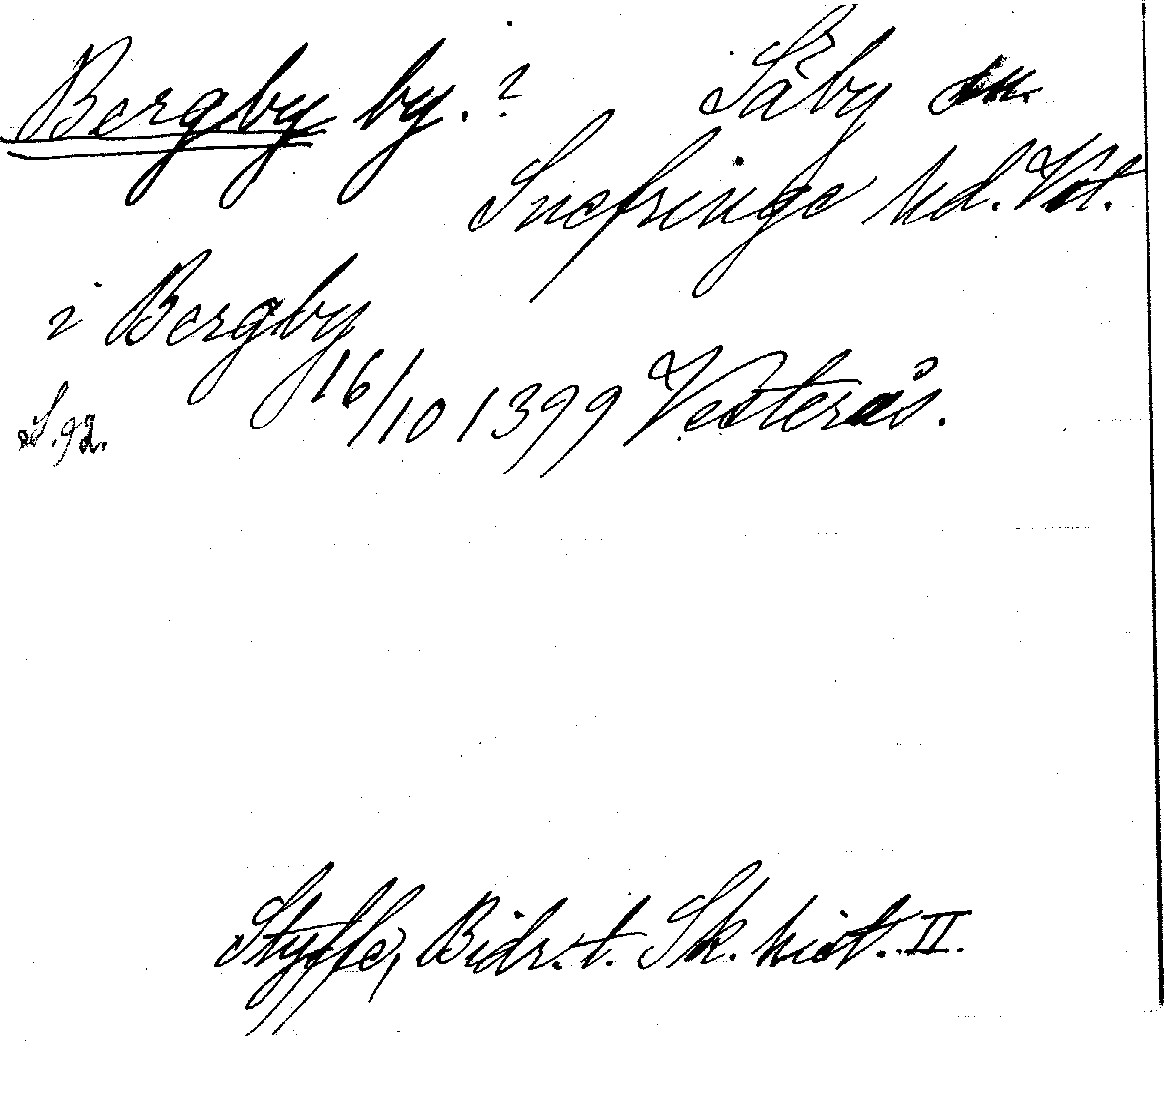 Bergby by. ? Säby sn.
Snefringe hd. Vstm.
i Bergby
16/10 1399 Vesterås.
S. 92.
Styffe, Bidr. t. Sk. hist. II.